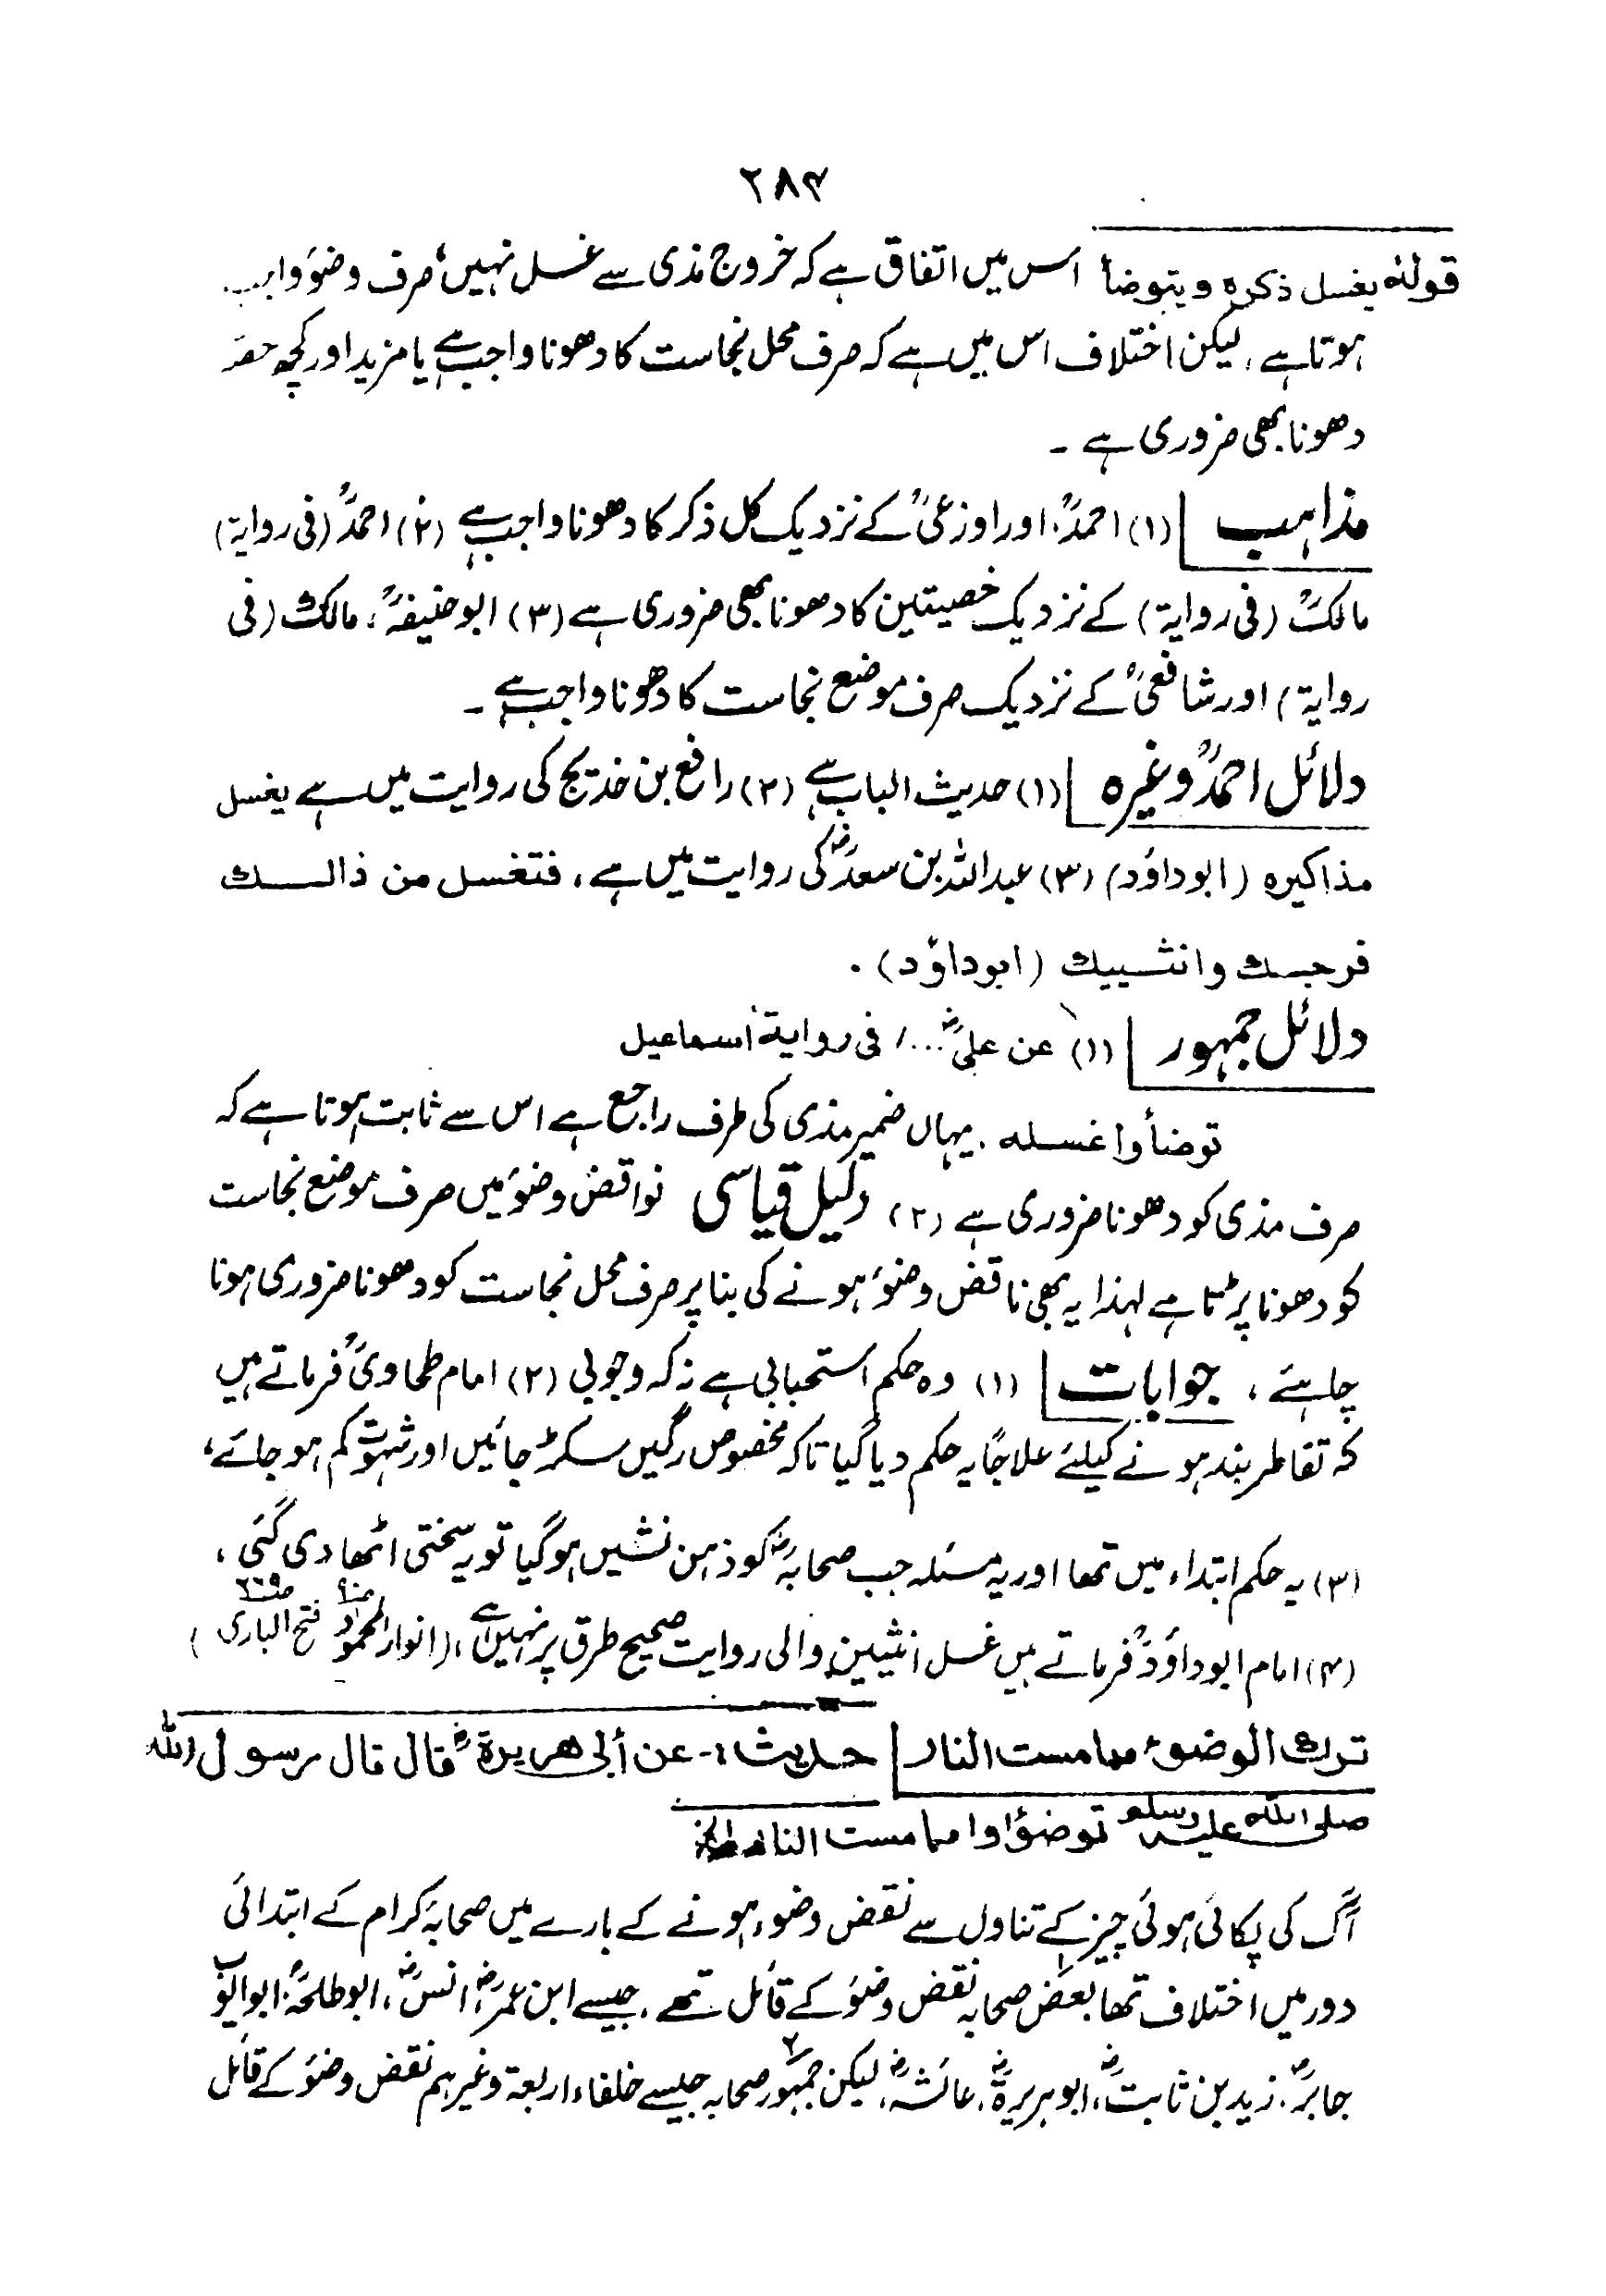 ۲۸۴
قولهٗ یغسل ذکرہ ویتوضأ اس میں اتفاق ہے کہ خروج مذی سے غسل نہیں، صرف وضوٴ
ہوتا ہے، لیکن اختلاف اس میں ہے کہ صرف محل نجاست کا دھونا واجب ہے یا مزید اور کچھ حصہ
دھونا بھی ضروری ہے ۔
مذاہب (۱) احمدؒ، اور اوزعیؒ کے نزدیک کل ذکر کا دھونا واجب ہے (۲) احمدؒ (فی روایۃ)
مالکؒ (فی روایۃ) کے نزدیک خصیتین کا دھونا بھی ضروری ہے (۳) ابو حنیفہؒ، مالکؒ (فی
روایۃ) اور شافعیؒ کے نزدیک صرف موضع نجاست کا دھونا واجب ہے ۔
دلائل احمدؒ وغیرہ (۱) حدیث الباب ہے (۲) رافع بن خدیج کی روایت میں ہے یغسل
مذاکیرہ (ابوداؤد) (۳) عبداللہ بن سعدؓ کی روایت میں ہے، فتغسل من ذالک
فرجک وانثییک (ابوداؤد) ۔
دلائل جمہور (۱) عن علیؓ ... / فی روایۃ اسماعیل
توضأ واغسلہ ۔ یہاں ضمیر مذی کی طرف راجع ہے اس سے ثابت ہوتا ہے کہ
صرف مذی کو دھونا ضروری ہے (۲) دلیل قیاسی نواقض وضوٴ میں صرف موضع نجاست
کو دھونا پڑتا ہے لہٰذا یہ بھی ناقض وضوٴ ہونے کی بنا پر صرف محل نجاست کو دھونا ضروری ہونا
چاہئے، جوابات (۱) وہ حکم استحبابی ہے نہ کہ وجوبی (۲) امام طحاویؒ فرماتے ہیں
کہ تقاطر بند ہونے کیلئے علاجًا یہ حکم دیا گیا تاکہ مخصوص رگیں سکڑ جائیں اور شہوت کم ہو جائے،
(۳) یہ حکم ابتداء میں تھا اور یہ مسئلہ جب صحابہؓ کو ذہن نشیں ہو گیا تو یہ سختی اٹھا دی گئی،
(۴) امام ابوداؤدؒ فرماتے ہیں غسل انثیین والی روایت صحیح طرق پر نہیں ہے، (انوار المحمود فتح الباری)
ترک الوضوء مما مست النار حدیث :- عن أبی ھریرۃؓ قال قال رسول اللہ
صلی اللہ علیہ وسلم توضؤاوا مما مست النار الخ
آگ کی پکائی ہوئی چیز کے تناول سے نقض وضوء ہونے کے بارے میں صحابہٴ کرام کے ابتدائی
دور میں اختلاف تھا بعض صحابہ نقض وضوٴ کے قائل تھے، جیسے ابن عمرؓ، انسؓ، ابوطلحہؓ، ابو ایوبؓ
جابرؓ، زید بن ثابتؓ، ابوہریرۃؓ، عائشہؓ، لیکن جمہور صحابہ جیسے خلفاء اربعۃ وغیرہم نقض وضوٴ کے قائل